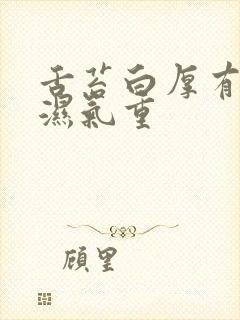 舌苔白厚有
濕氣重
顧里